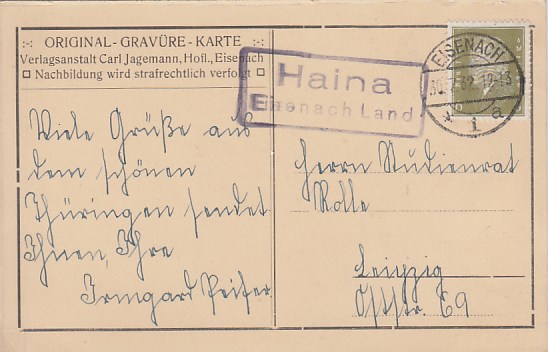 ORIGINAL-GRAVÜRE-KARTE
Verlagsanstalt Carl Jagemann, Hofl., Eisenach
Nachbildung wird strafrechtlich verfolgt
Haina
Eisenach Land
EISENACH
i a
Viele Grüße aus
dem schönen
Thüringen sendet
Ihnen, Ihre
Irmgard Peifer
Herrn Studienrat
Rolle
Leipzig
Oststr. 69